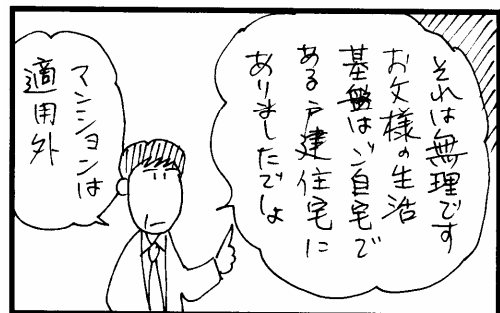 それは無理です
お父様の生活
基盤はご自宅で
ある戸建住宅に
ありましたでしょ
マンションは
適用外